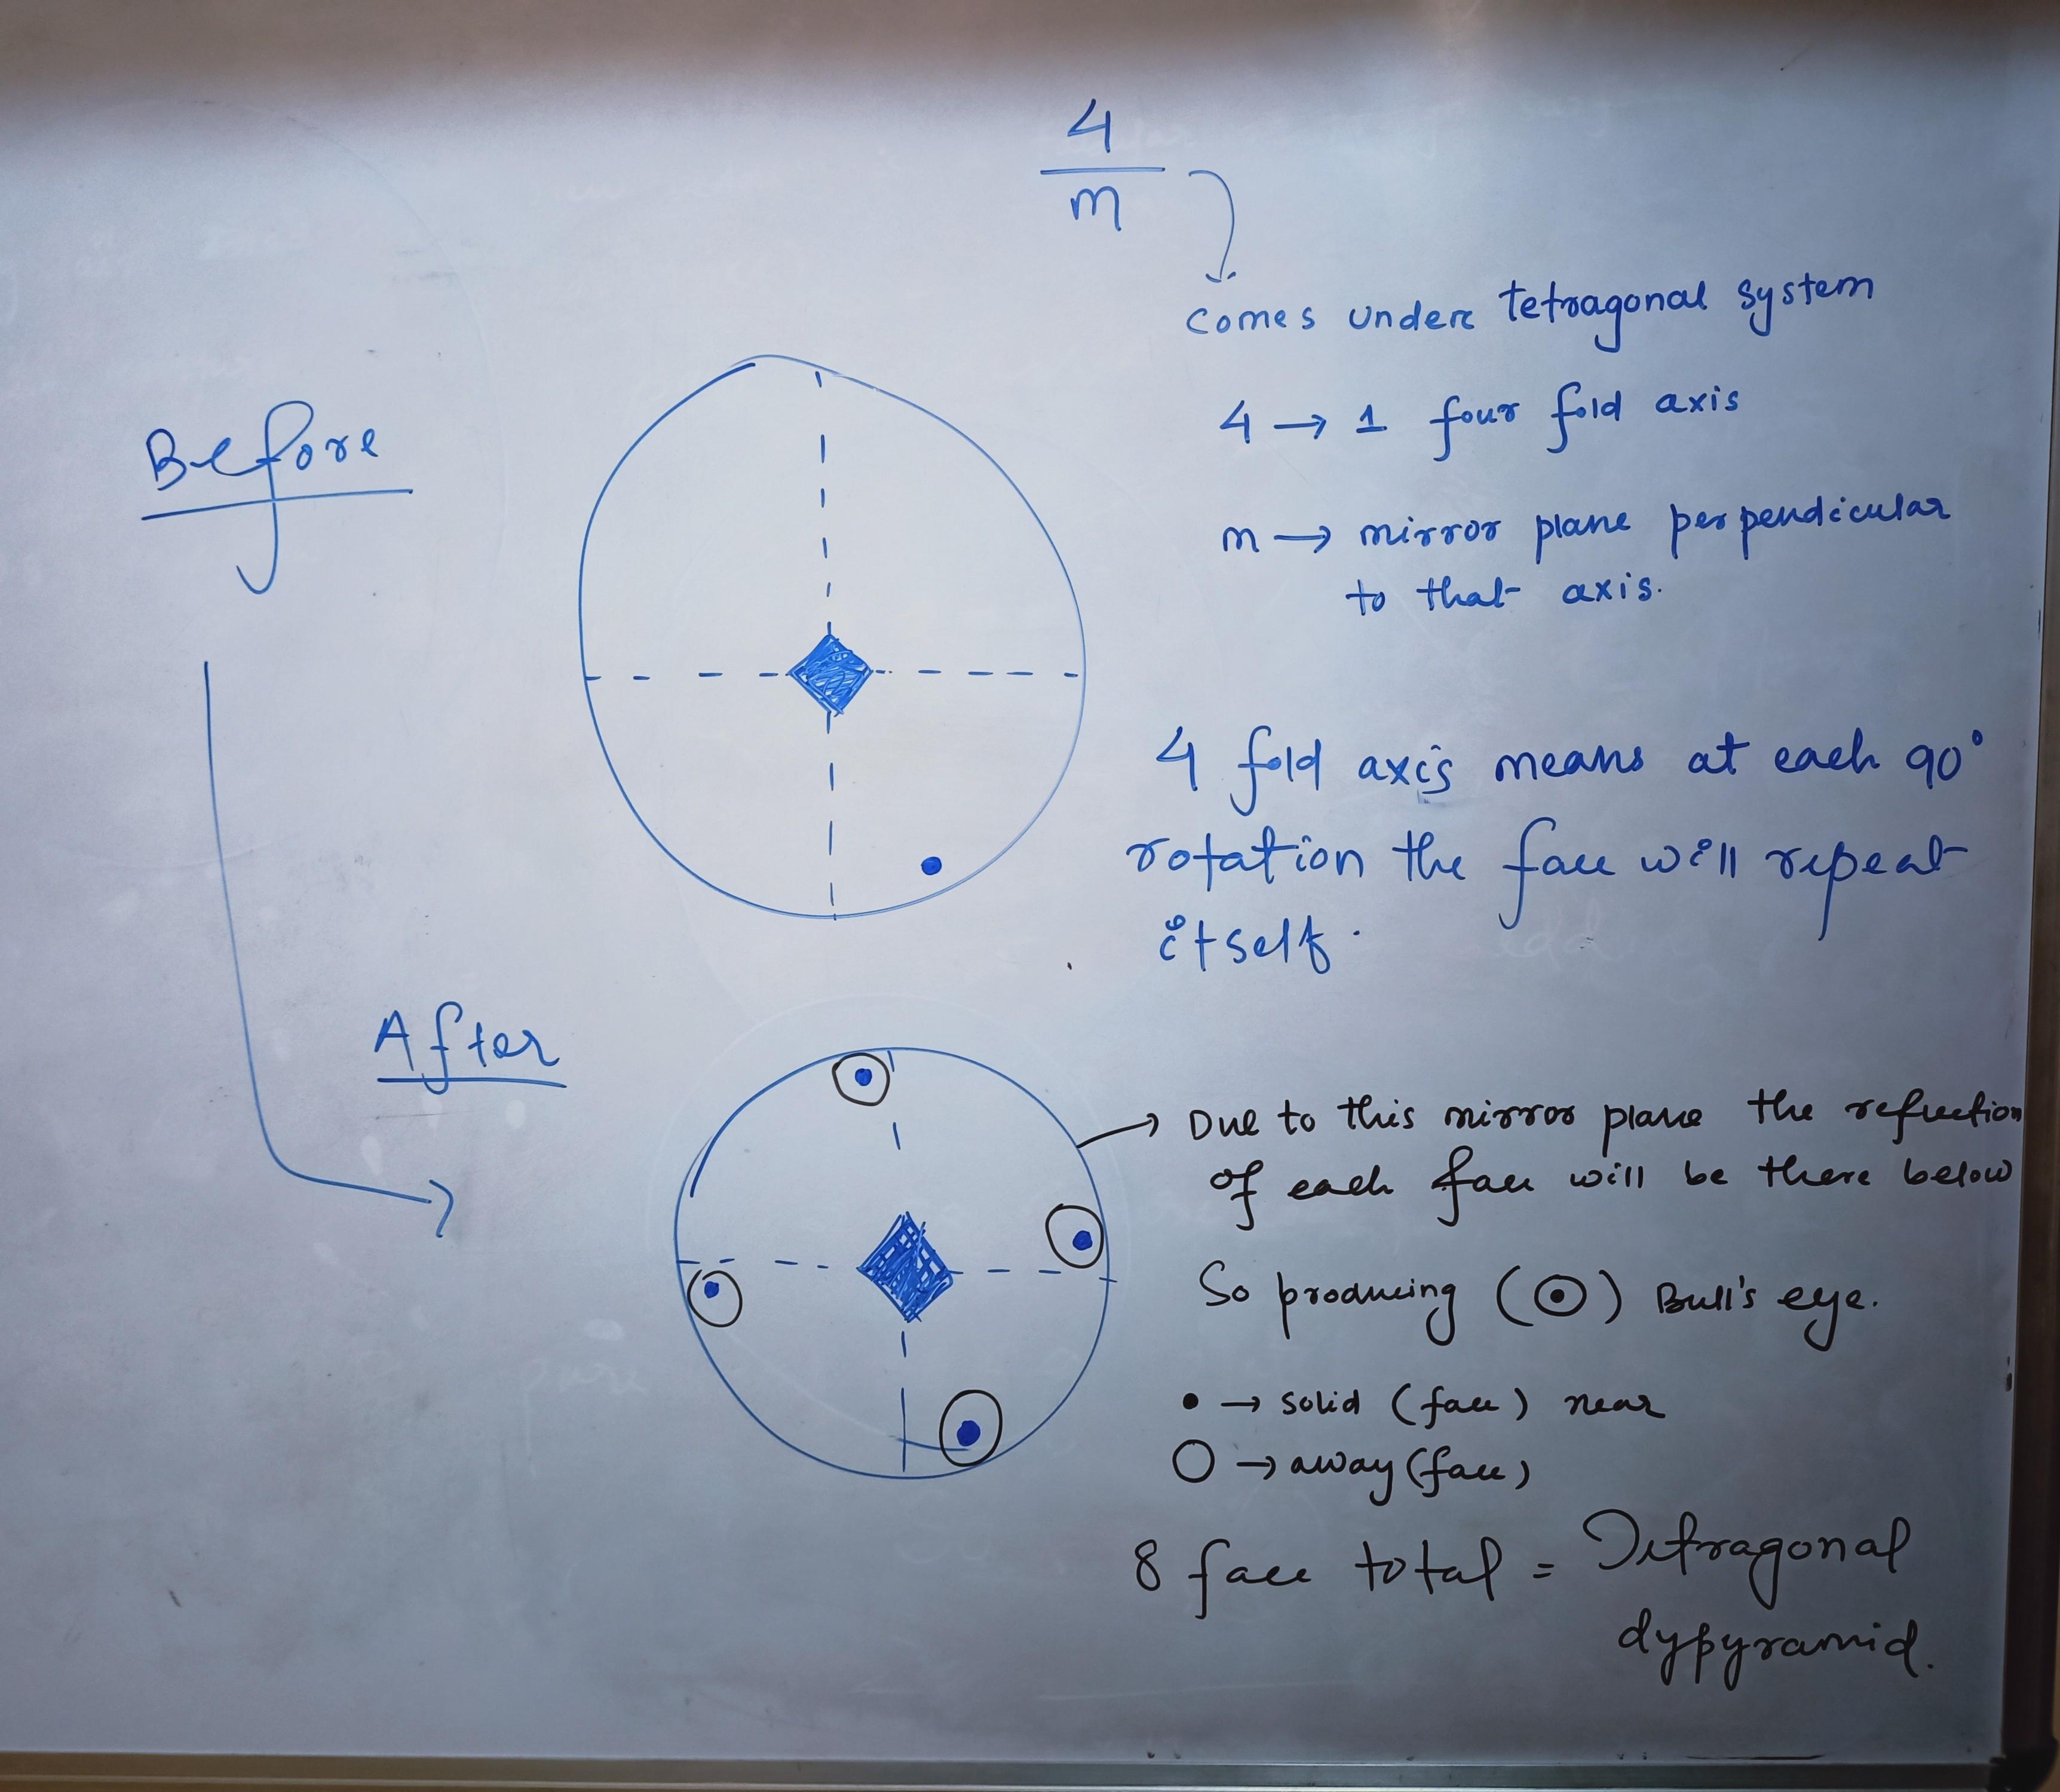 4
m
Comes under tetragonal system
4 → 1 four fold axis
m → mirror plane perpendicular
to that axis.
Before
4 fold axis means at each 90°
rotation the face will repeat
itself.
After
→ Due to this mirror plane the reflection
of each face will be there below
So producing (⊙) Bull's eye.
• → solid (face) near
○ → away (face)
8 face total = Tetragonal
dypyramid.